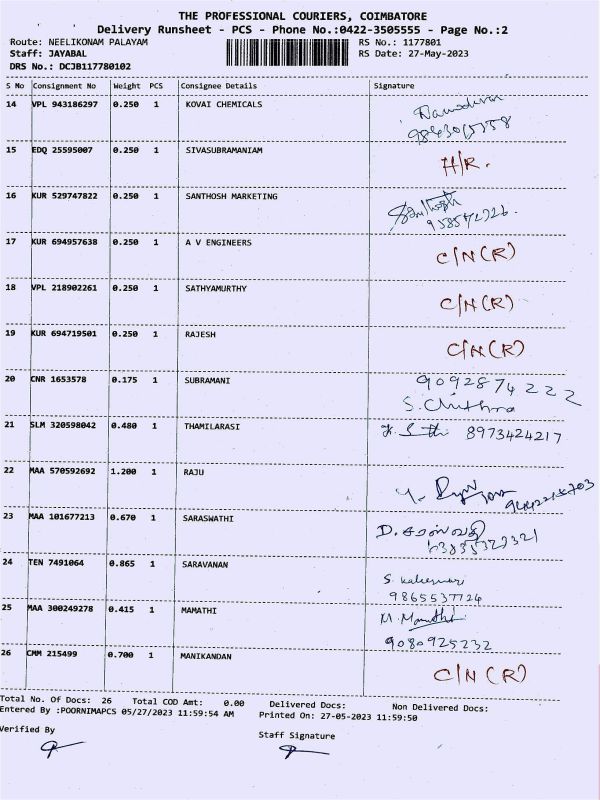 THE PROFESSIONAL COURIERS, COIMBATORE
Delivery Runsheet - PCS - Phone No.:0422-3505555 - Page No.:2
Route: NEELIKONAM PALAYAM RS No.: 1177801
Staff: JAYABAL RS Date: 27-May-2023
DRS No.: DCJB117780102
S No Consignment No Weight PCS Consignee Details Signature
14 VPL 943186297 0.250 1 KOVAI CHEMICALS
15 EDQ 25595007 0.250 1 SIVASUBRAMANIAM H/R.
16 KUR 529747822 0.250 1 SANTHOSH MARKETING Santhosh
17 KUR 694957638 0.250 1 A V ENGINEERS C/N(R)
18 VPL 218902261 0.250 1 SATHYAMURTHY C/N(R)
19 KUR 694719501 0.250 1 RAJESH C/N(R)
20 CNR 1653578 0.175 1 SUBRAMANI 9092874222
S. Chithra
21 SLM 320598042 0.480 1 THAMILARASI 8973424217
22 MAA 570592692 1.200 1 RAJU
23 MAA 101677213 0.670 1 SARASWATHI D. சரஸ்வதி
24 TEN 7491064 0.865 1 SARAVANAN S.
9865537724
25 MAA 300249278 0.415 1 MAMATHI M. Mamathi
9080925232
26 CMM 215499 0.700 1 MANIKANDAN C/N(R)
Total No. Of Docs: 26 Total COD Amt: 0.00 Delivered Docs: Non Delivered Docs:
Entered By :POORNIMAPCS 05/27/2023 11:59:54 AM Printed On: 27-05-2023 11:59:50
Verified By Staff Signature